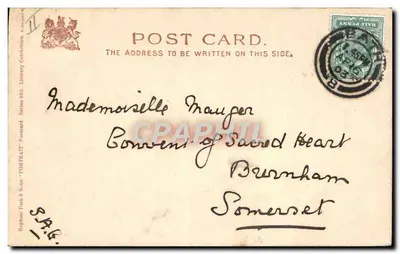 II
POST CARD.
THE ADDRESS TO BE WRITTEN ON THIS SIDE.
HALF PENNY
Mademoiselle Mauger
Convent of Sacred Heart
Burnham
Somerset
S.A.G.
CPAPHIL
Raphael Tuck & Sons "PORTRAIT" Postcard Series